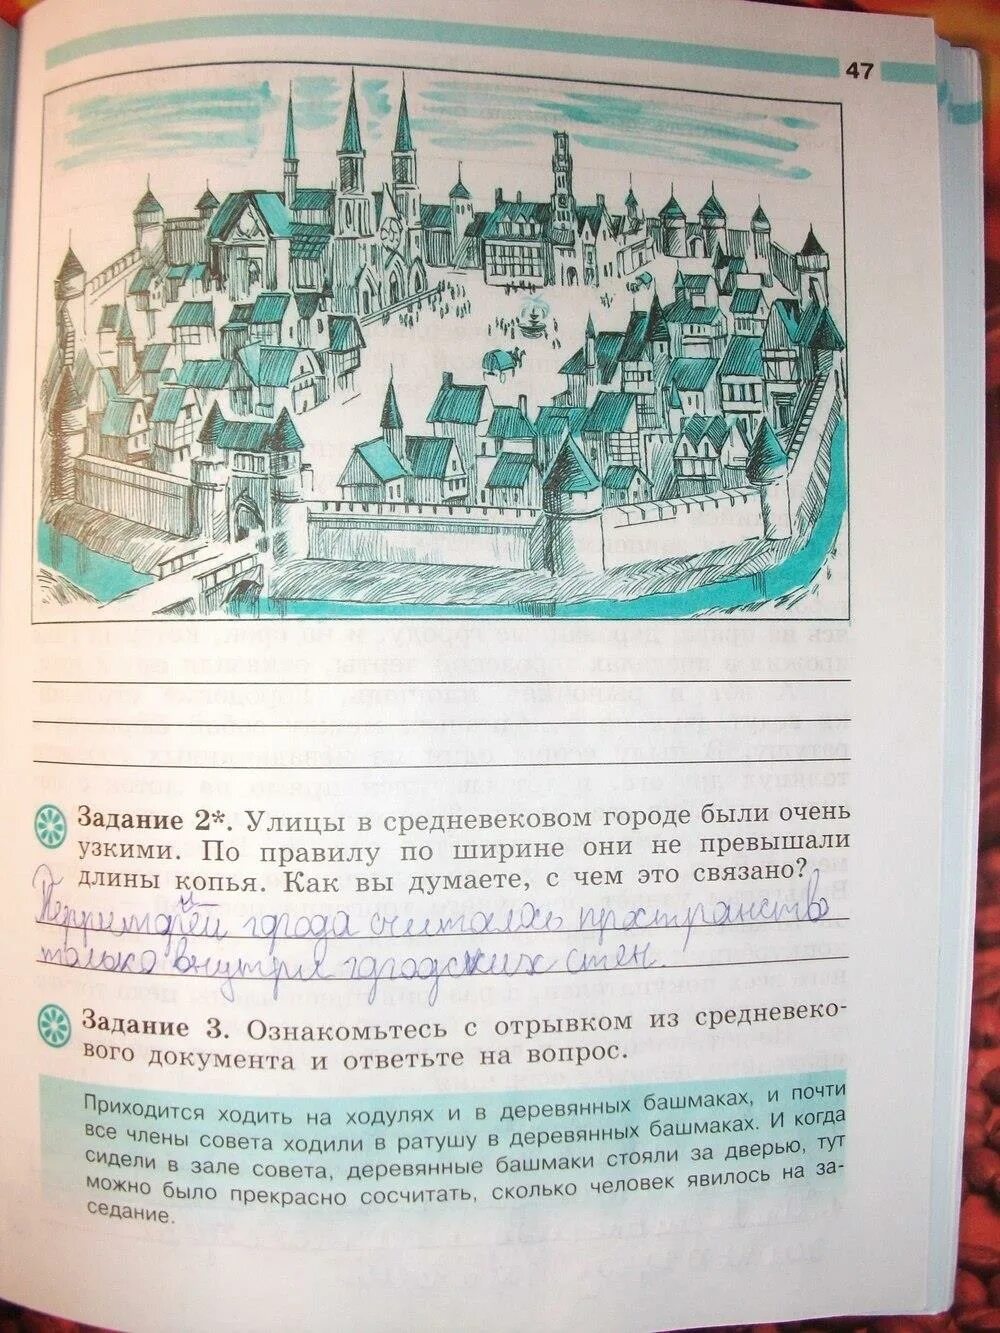 47
Задание 2*. Улицы в средневековом городе были очень
узкими. По правилу по ширине они не превышали
длины копья. Как вы думаете, с чем это связано?
Территорией города считалось пространство
только внутри городских стен
Задание 3. Ознакомьтесь с отрывком из средневеко-
вого документа и ответьте на вопрос.
Приходится ходить на ходулях и в деревянных башмаках, и почти
все члены совета ходили в ратушу в деревянных башмаках. И когда
сидели в зале совета, деревянные башмаки стояли за дверью, тут
можно было прекрасно сосчитать, сколько человек явилось на за-
седание.